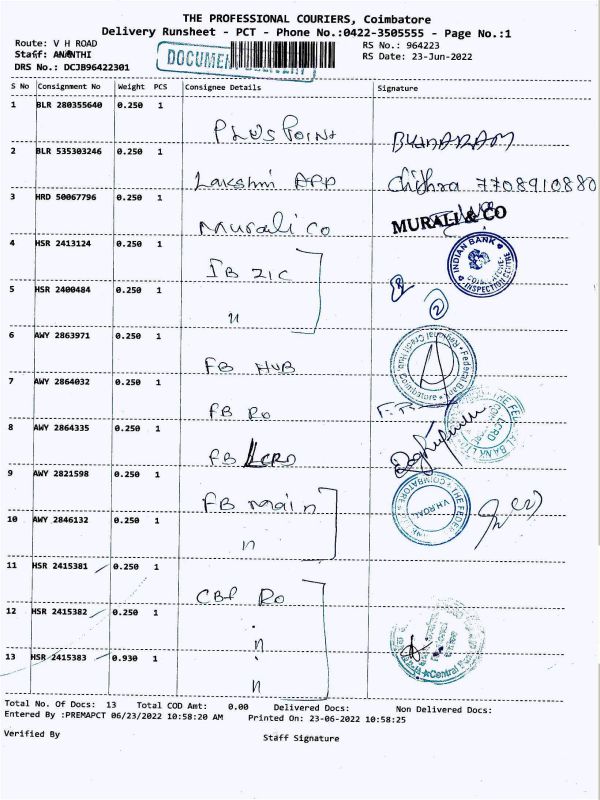 THE PROFESSIONAL COURIERS, Coimbatore
Delivery Runsheet - PCT - Phone No.:0422-3505555 - Page No.:1
Route: V H ROAD RS No.: 964223
Staff: ANANTHI RS Date: 23-Jun-2022
DRS No.: DCJB96422301
S No Consignment No Weight PCS Consignee Details Signature
1 BLR 280355640 0.250 1
Plus Point
2 BLR 535303246 0.250 1
Lakshmi APP Chithra 7708910880
3 HRD 50067796 0.250 1
Murali co MURALI & CO
4 HSR 2413124 0.250 1
IB ZIC INDIAN BANK INSPECTION CENTRE
5 HSR 2400484 0.250 1
" 2
6 AWY 2863971 0.250 1
FB HUB Federal Regional Credit Hub, Coimbatore
7 AWY 2864032 0.250 1
FB RO
8 AWY 2864335 0.250 1
FB LCRD THE FEDERAL BANK LTD LCRD
9 AWY 2821598 0.250 1
FB main V.H.ROAD COIMBATORE
10 AWY 2846132 0.250 1
"
11 HSR 2415381 0.250 1
CBI RO
12 HSR 2415382 0.250 1
"
13 HSR 2415383 0.930 1
" Central
Total No. Of Docs: 13 Total COD Amt: 0.00 Delivered Docs: Non Delivered Docs:
Entered By :PREMAPCT 06/23/2022 10:58:20 AM Printed On: 23-06-2022 10:58:25
Verified By Staff Signature